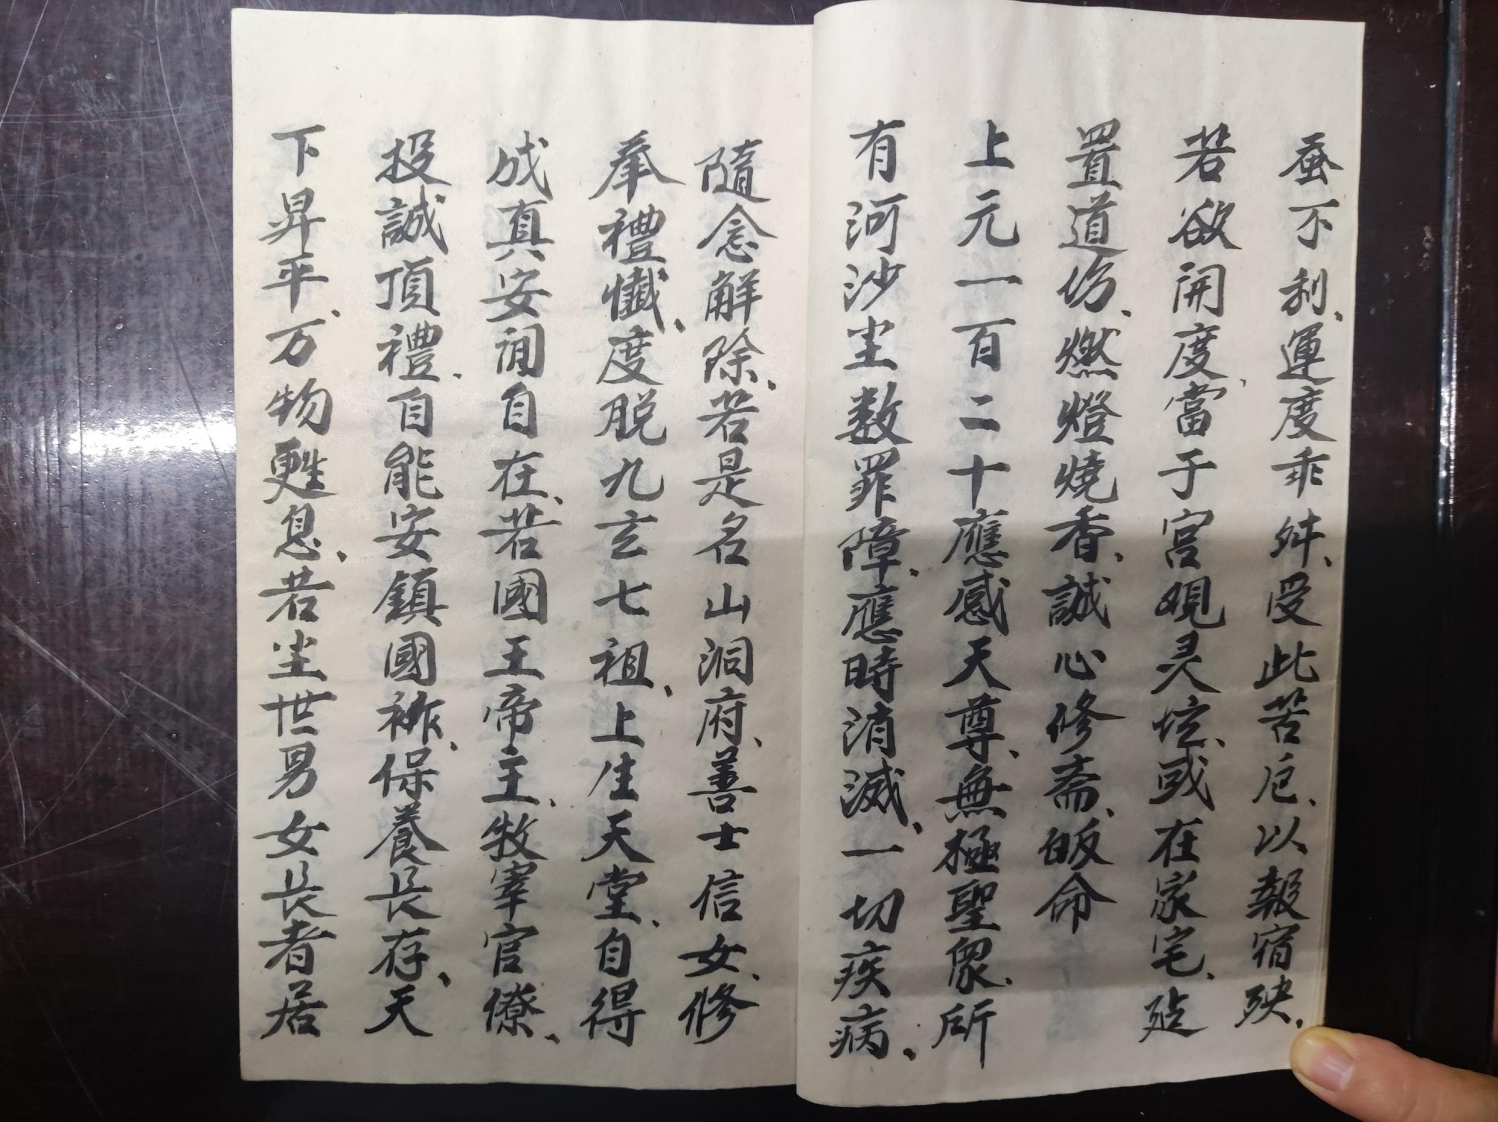 蚕不利、運度乖舛、受此苦厄、以報宿殃、
若欲開度、當于宫观灵坛、或在家宅、
置道场、燃燈燒香、誠心修斋、皈命
上元一百二十應感天尊、無極聖眾、所
有河沙尘数罪障、應時消滅、一切疾病、
隨念解除、若是名山洞府、善士信女、修
奉禮懺、度脱九玄七祖、上生天堂、自得
成真安閒自在、若國王帝主、牧宰官僚、
投誠頂禮、自能安鎮國祚、保養長存、天
下昇平、万物甦息、若尘世男女長者居